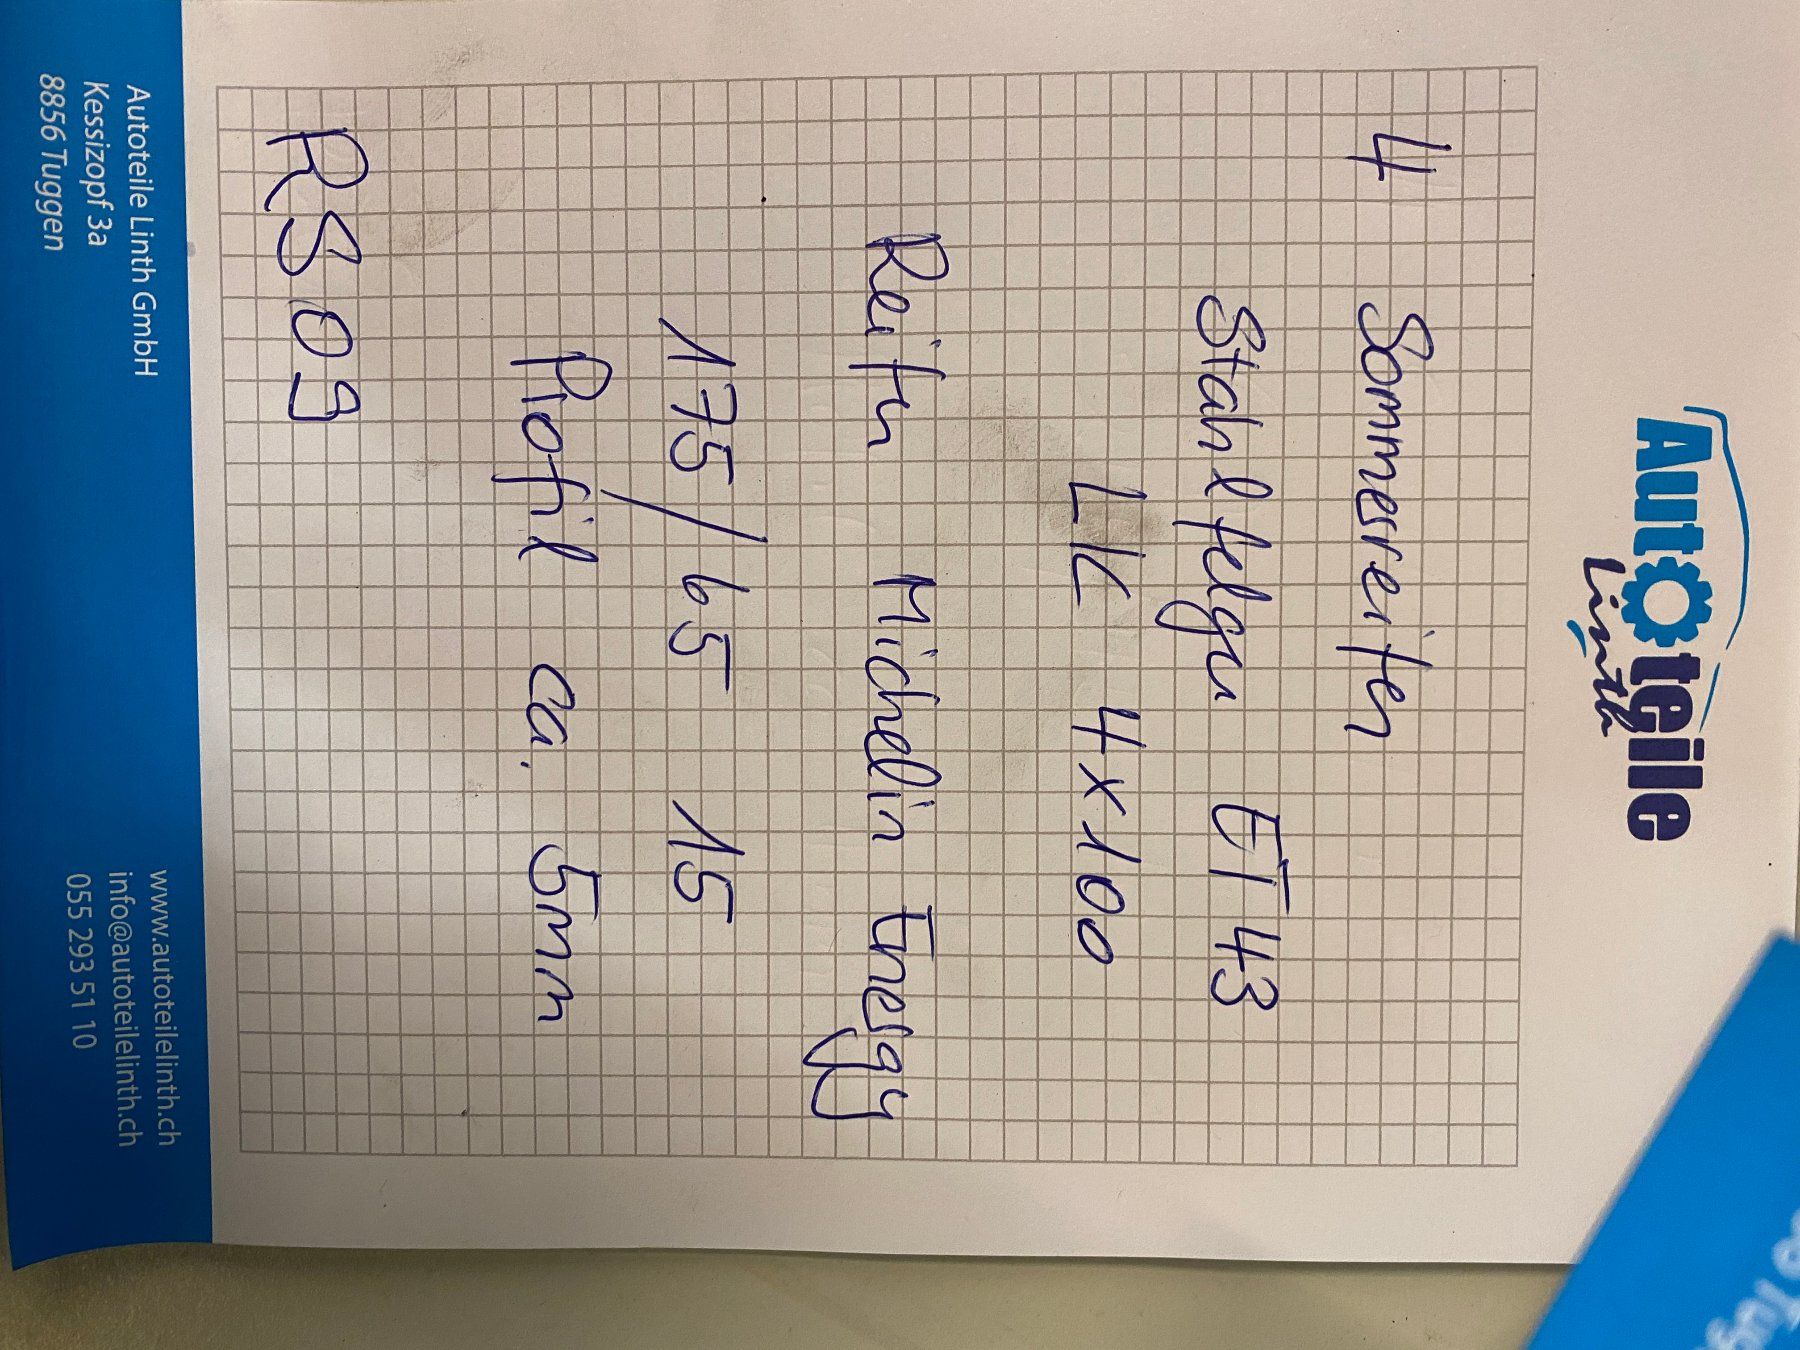 Autoteile
Linth
4 Sommerreifen
Stahlfelgen ET 43
LK 4x100
Reifen Michelin Energy
175/65 15
Profil ca. 5mm
RS09
Autoteile Linth GmbH
Kessizopf 3a
8856 Tuggen
www.autoteilelinth.ch
info@autoteilelinth.ch
055 293 51 10